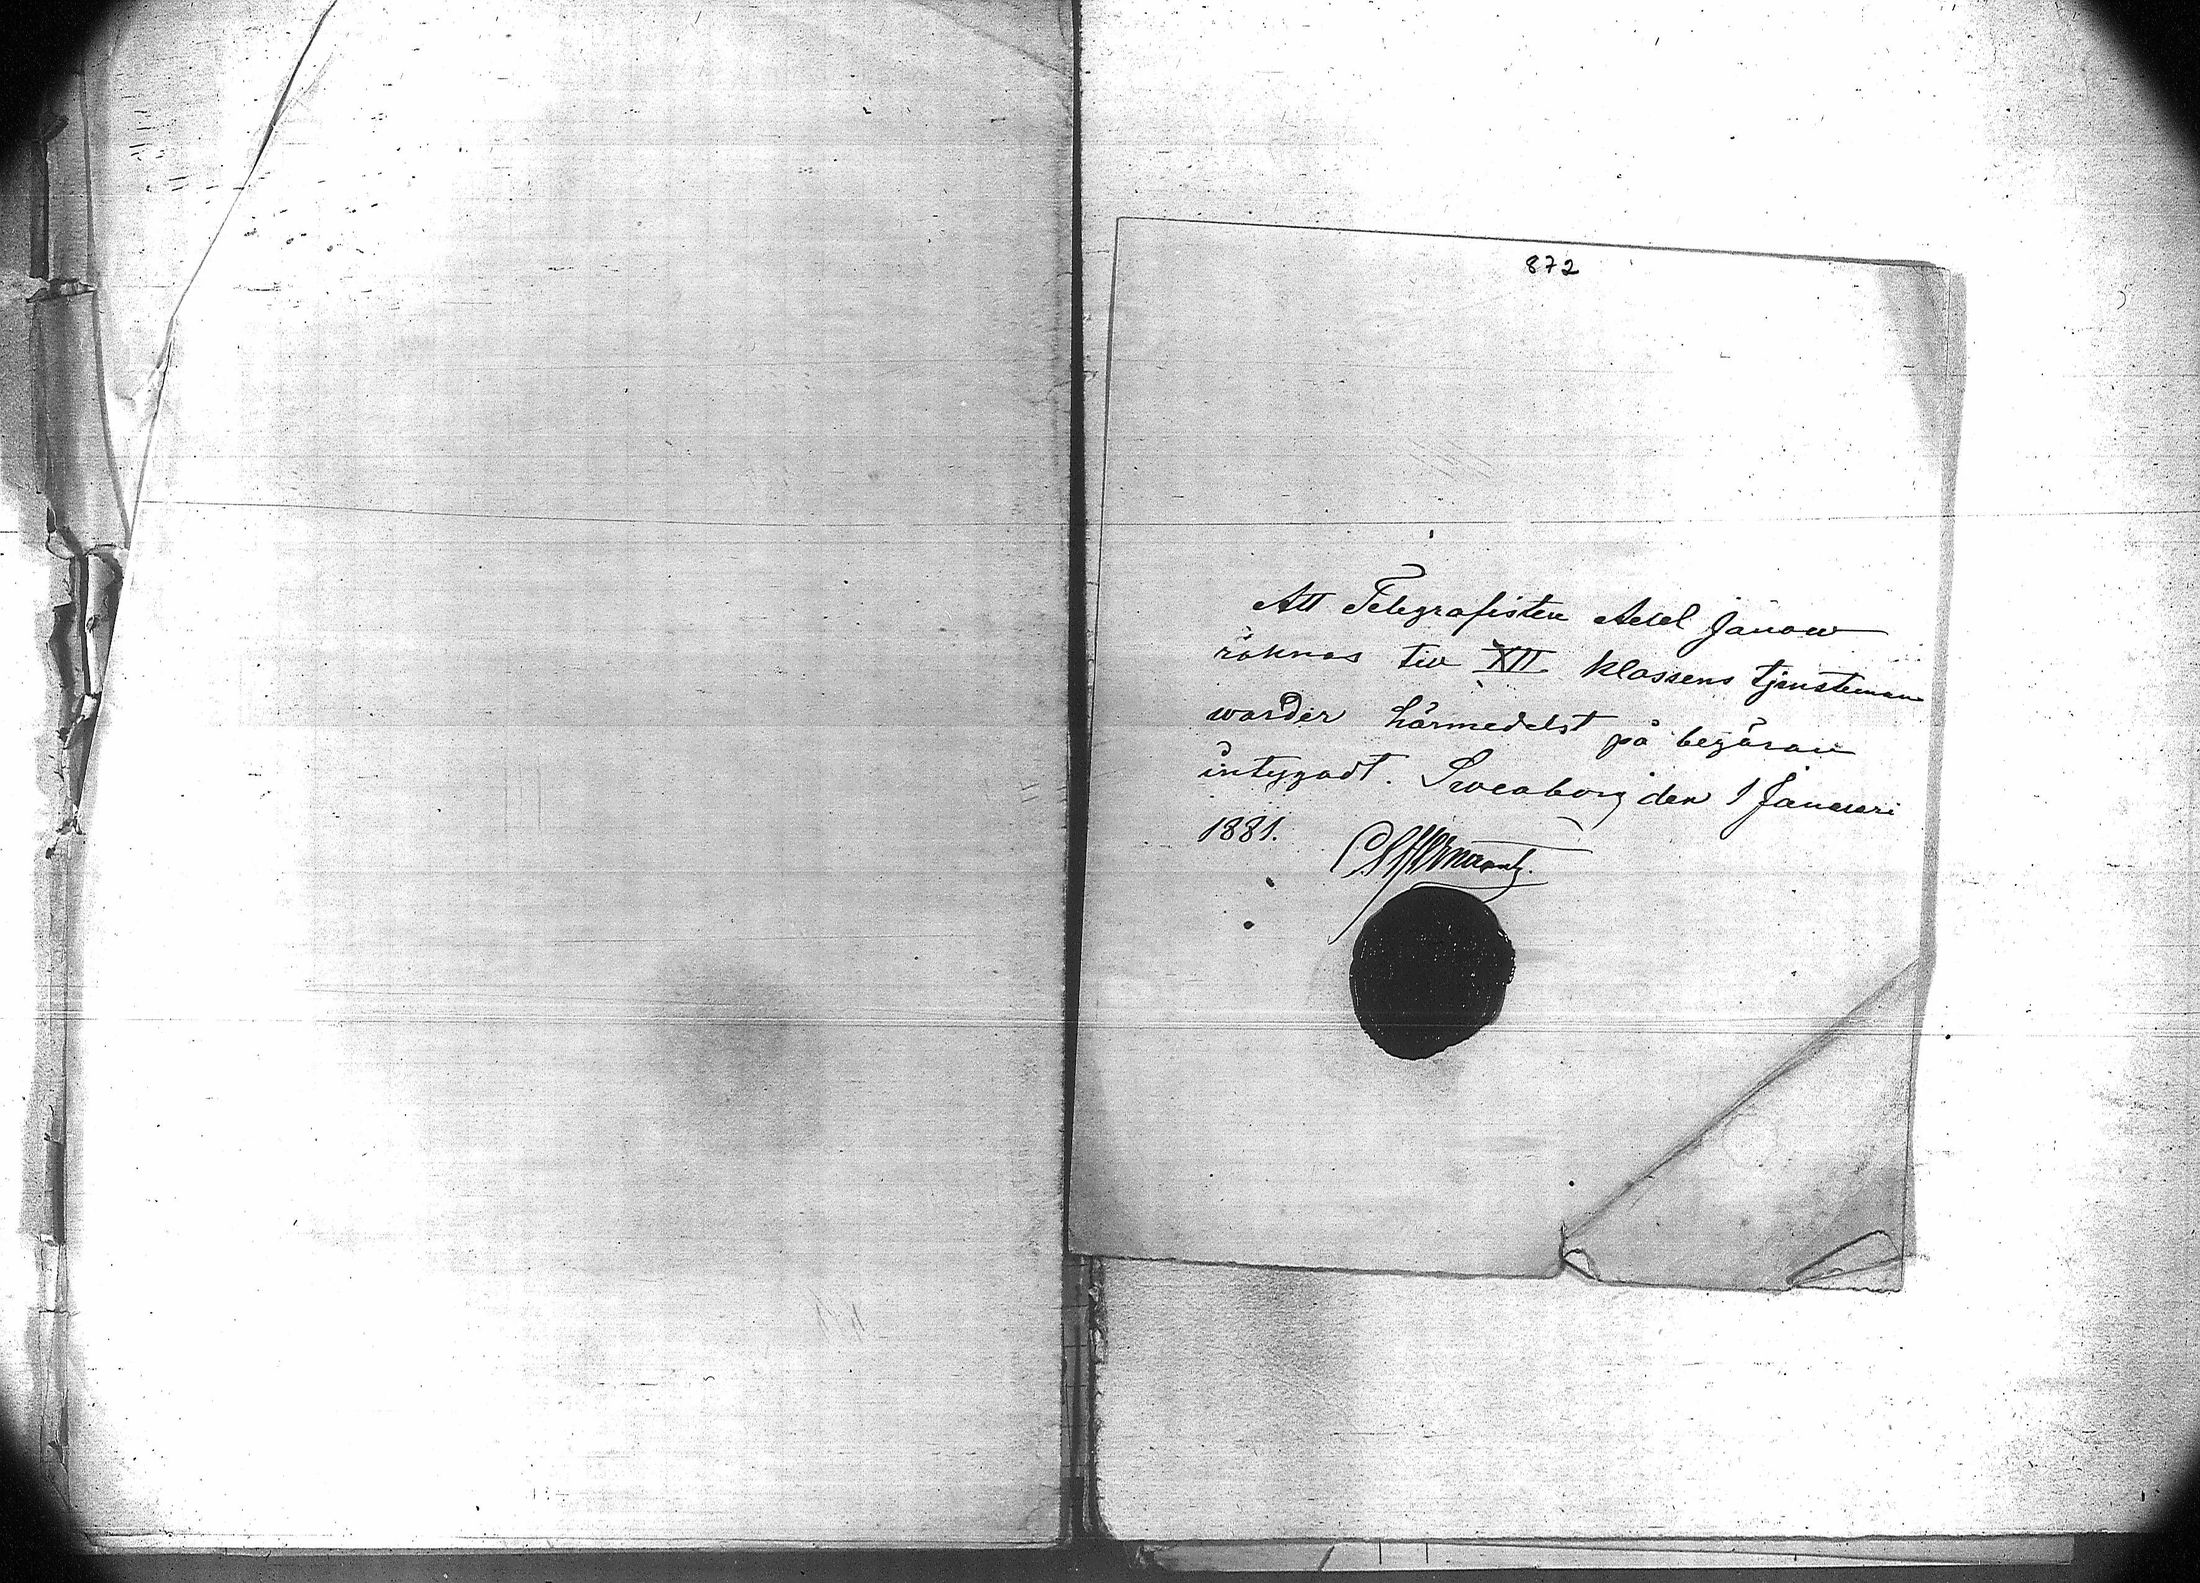 872
Att Telegrafisten Axel Janow
räknas till XII klassens tjensteman
warder härmedelst på begäran
intygadt. Sweaborg den 1 Januari
1881.